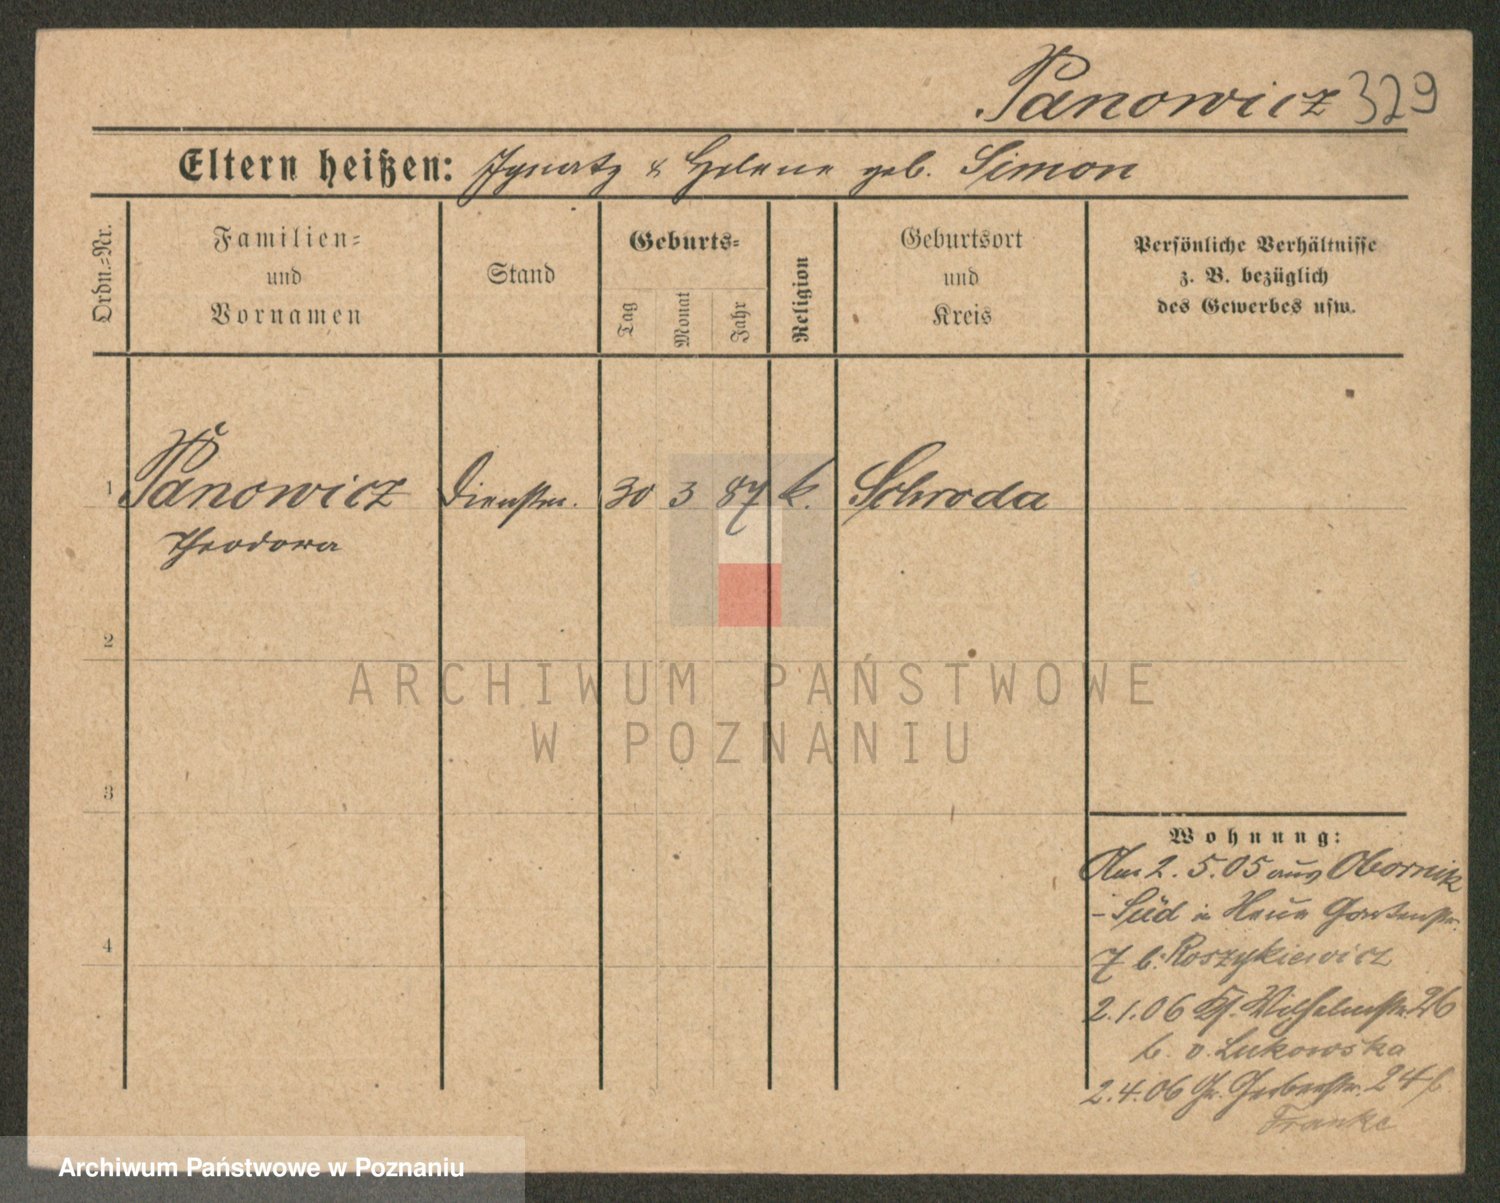 Panowicz 329
Eltern heißen: Ignatz & Helene geb. Simon
Ordn.-Nr.
Familien-
und
Vornamen
Stand
Geburts-
Tag
Monat
Jahr
Religion
Geburtsort
und
Kreis
Persönliche Verhältnisse
z. B. bezüglich
des Gewerbes usw.
1 Panowicz Dienstm. 30 3 87 k. Schroda
Theodora
2
ARCHIWUM PAŃSTWOWE
W POZNANIU
3
4
Wohnung:
Am 2.5.05 aus Obornik
-Süd in Neue Gartenstr.
7 b. Roszykiewicz
2.1.06 Wilhelmstr. 26
b. v. Lukowska
2.4.06 Gr. Gerberstr. 24 b.
Franke
Archiwum Państwowe w Poznaniu